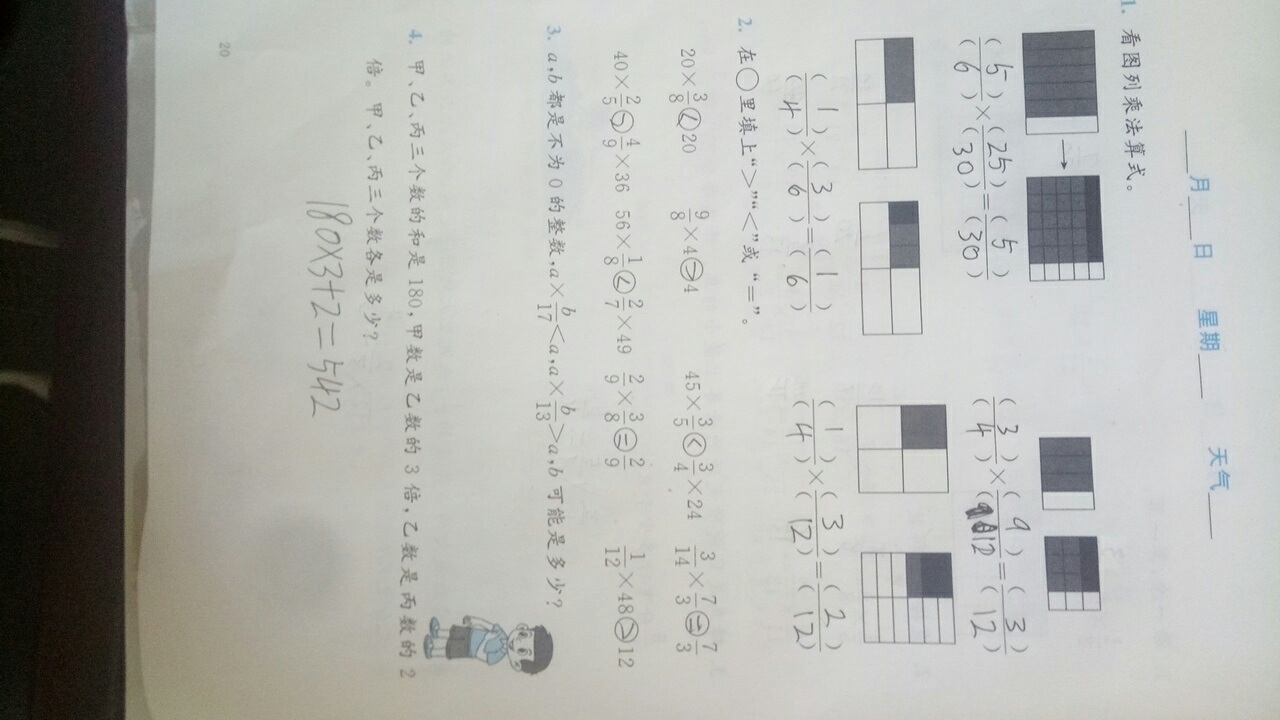 ___月___日 星期___ 天气___
1. 看图列乘法算式。
(5)/(6)×(25)/(30)=(5)/(30) (3)/(4)×(9)/(12)=(3)/(12)
(1)/(4)×(3)/(6)=(1)/(6) (1)/(4)×(3)/(12)=(2)/(12)
2. 在○里填上“>”“<”或“=”。
20×3/8<20 9/8×4○4 45×3/5<3/4×24 3/14×7/3=7/3
40×2/5>4/9×36 56×1/8<2/7×49 2/9×3/8=2/9 1/12×48>12
3. a,b都是不为0的整数,a×b/17<a,a×b/13>a,b可能是多少?
4. 甲、乙、丙三个数的和是180,甲数是乙数的3倍,乙数是丙数的2
倍。甲、乙、丙三个数各是多少?
180×3+2=542
20